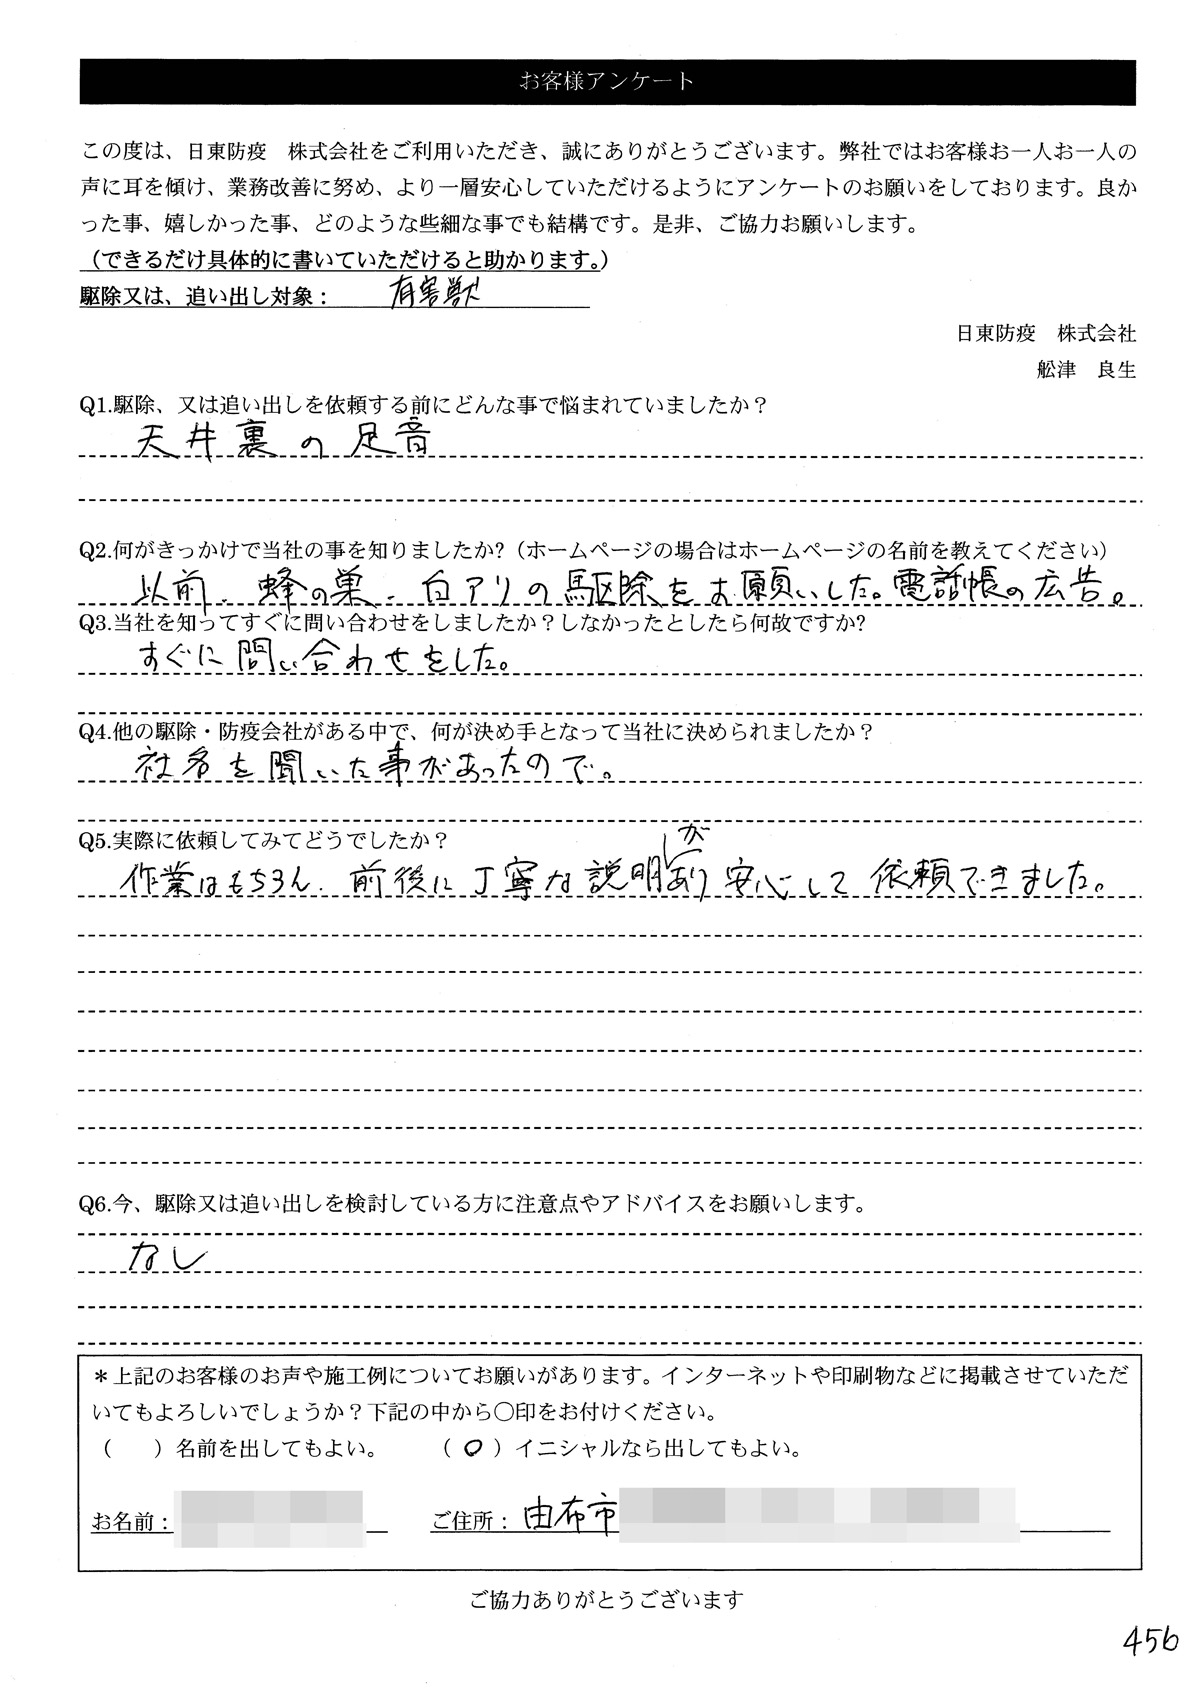 お客様アンケート
この度は、日東防疫　株式会社をご利用いただき、誠にありがとうございます。弊社ではお客様お一人お一人の
声に耳を傾け、業務改善に努め、より一層安心していただけるようにアンケートのお願いをしております。良か
った事、嬉しかった事、どのような些細な事でも結構です。是非、ご協力お願いします。
（できるだけ具体的に書いていただけると助かります。）
駆除又は、追い出し対象：　有害獣
日東防疫　株式会社
舩津　良生
Q1.駆除、又は追い出しを依頼する前にどんな事で悩まれていましたか？
天井裏の足音
Q2.何がきっかけで当社の事を知りましたか?（ホームページの場合はホームページの名前を教えてください）
以前、蜂の巣、白アリの駆除をお願いした。電話帳の広告。
Q3.当社を知ってすぐに問い合わせをしましたか？しなかったとしたら何故ですか?
すぐに問い合わせをした。
Q4.他の駆除・防疫会社がある中で、何が決め手となって当社に決められましたか？
社名を聞いた事があったので。
Q5.実際に依頼してみてどうでしたか？
作業はもちろん、前後に丁寧な説明があり安心して依頼できました。
Q6.今、駆除又は追い出しを検討している方に注意点やアドバイスをお願いします。
なし
＊上記のお客様のお声や施工例についてお願いがあります。インターネットや印刷物などに掲載させていただ
いてもよろしいでしょうか？下記の中から〇印をお付けください。
（　　）名前を出してもよい。　　（ 〇 ）イニシャルなら出してもよい。
お名前：　　ご住所：由布市
ご協力ありがとうございます
456